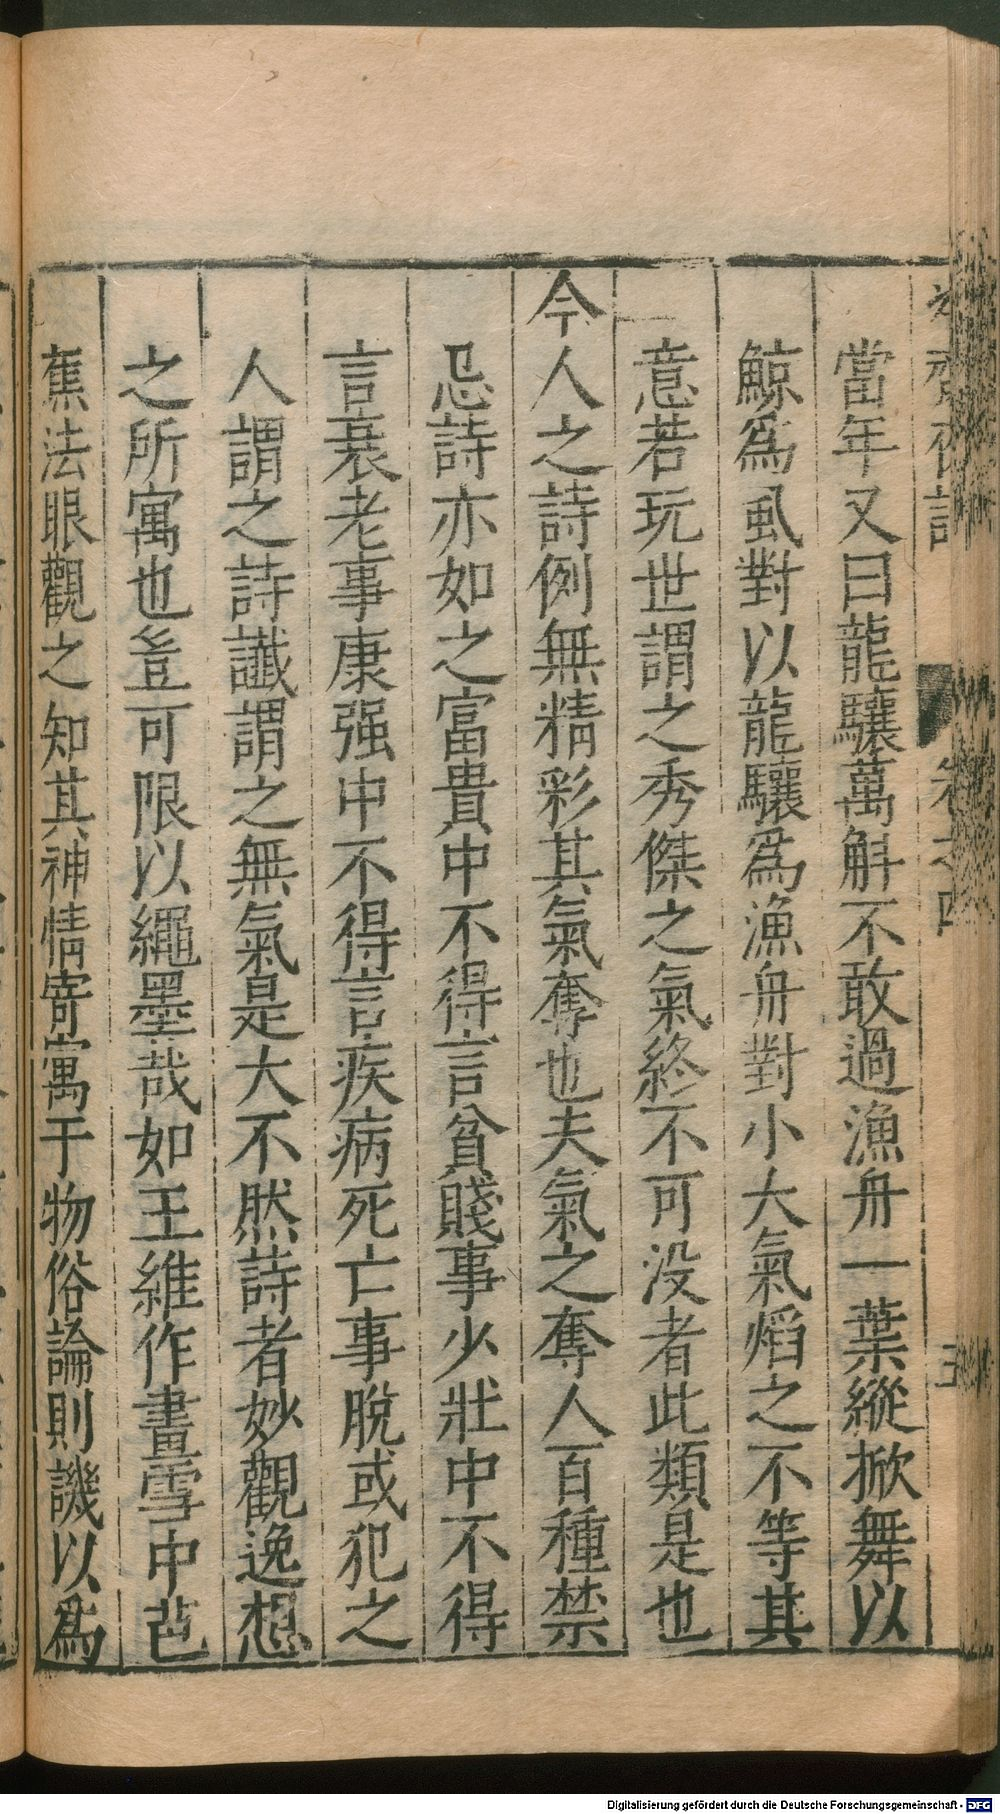 當年又曰龍驤萬斛不敢過漁舟一葉縱掀舞以
鯨爲虱對以龍驤爲漁舟對小大氣焰之不等其
意若玩世謂之秀傑之氣終不可没者此類是也
今人之詩例無精彩其氣奪也夫氣之奪人百種禁
忌詩亦如之富貴中不得言貧賤事少壯中不得
言衰老事康强中不得言疾病死亡事脫或犯之
人謂之詩讖謂之無氣是大不然詩者妙觀逸想
之所寓也豈可限以繩墨哉如王維作畫雪中芭
蕉法眼觀之知其神情寄寓于物俗論則譏以爲
Digitalisierung gefördert durch die Deutsche Forschungsgemeinschaft - DFG